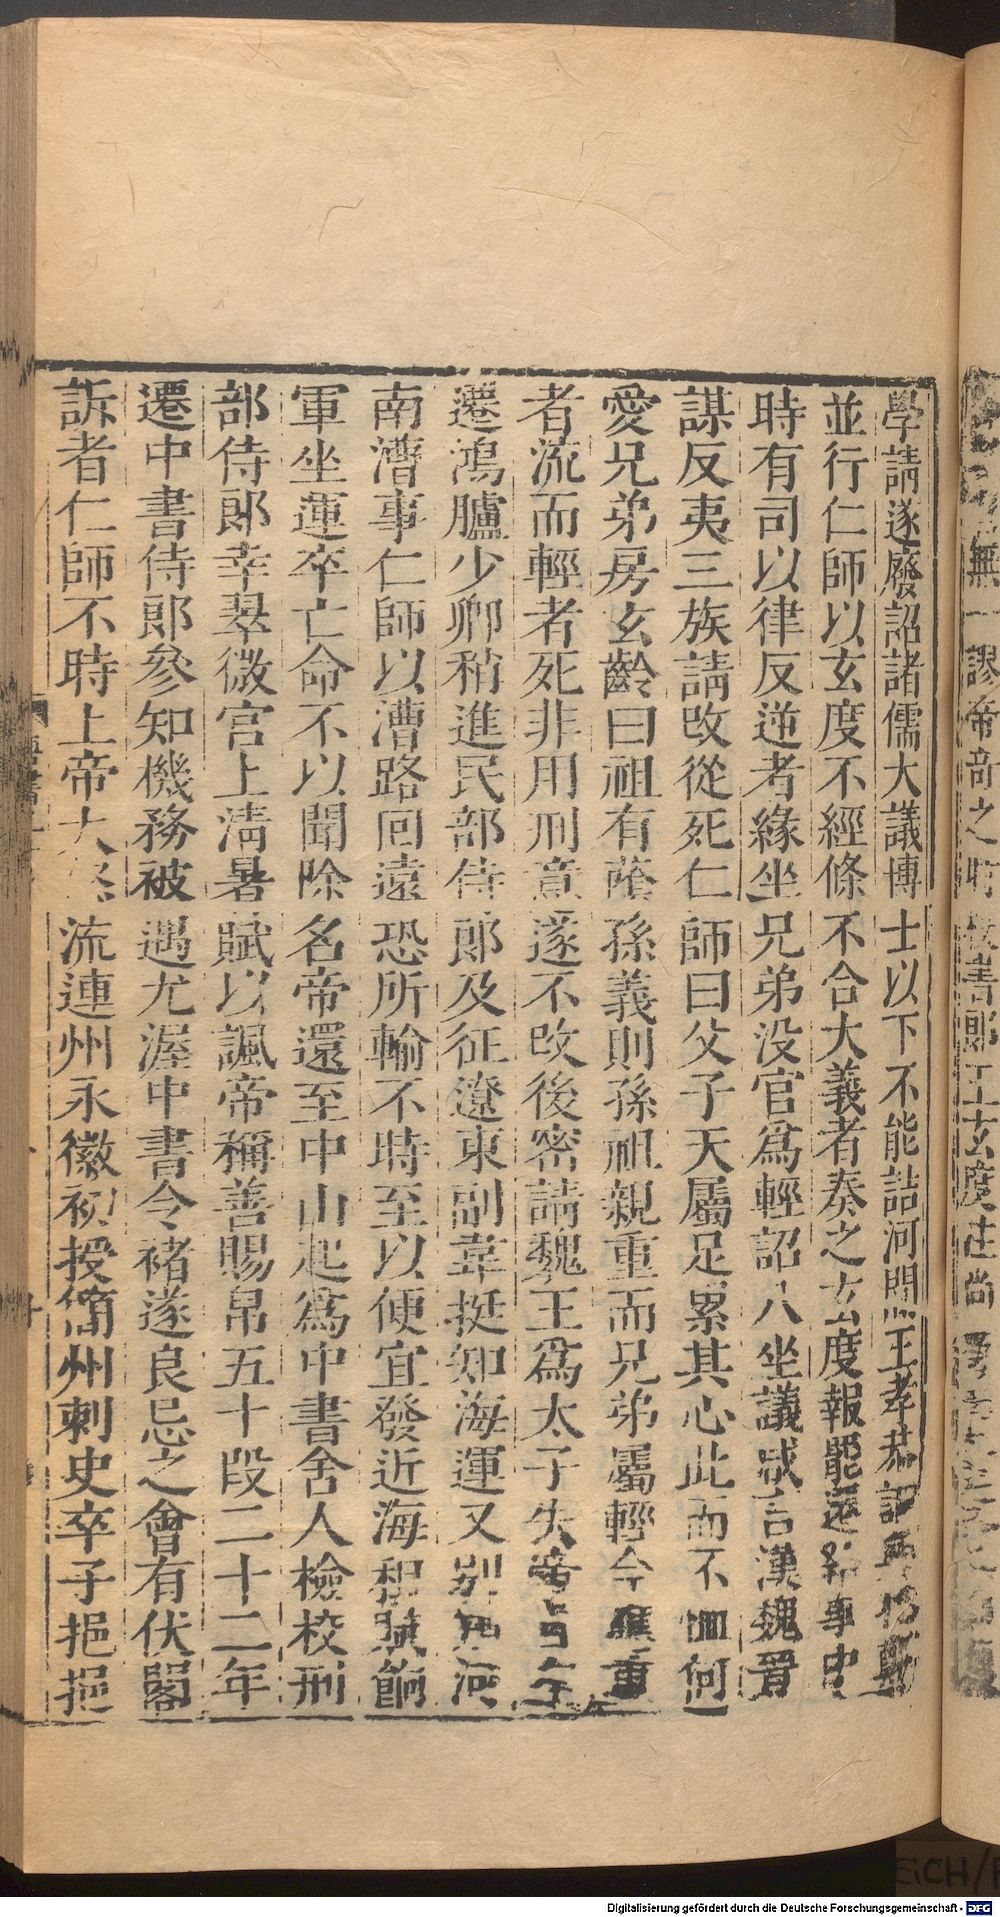 學請遂廢詔諸儒大議博士以下不能詰河間王孝恭
並行仁師以玄度不經條不合大義者奏之玄度報罷遷給事中
時有司以律反逆者緣坐兄弟没官爲輕詔八坐議咸言漢魏晉
謀反夷三族請改從死仁師曰父子天屬足累其心此而不恤何
愛兄弟房玄齡曰祖有蔭孫義則孫祖親重而兄弟屬輕今應重
者流而輕者死非用刑意遂不改後密請魏王爲太子失帝旨左
遷鴻臚少卿稍進民部侍郎及征遼東副韋挺知海運又別知河
南漕事仁師以漕路回遠恐所輸不時至以便宜發近海租賦餉
軍坐運卒亡命不以聞除名帝還至中山起爲中書舍人檢校刑
部侍郎幸翠微宫上淸暑賦以諷帝稱善賜帛五十段二十二年
遷中書侍郎參知機務被遇尤渥中書令褚遂良忌之會有伏閤
訴者仁師不時上帝大怒流連州永徽初授簡州刺史卒子挹挹
無一謬帝奇之時校書郎王玄度注尚
Digitalisierung gefördert durch die Deutsche Forschungsgemeinschaft - DFG